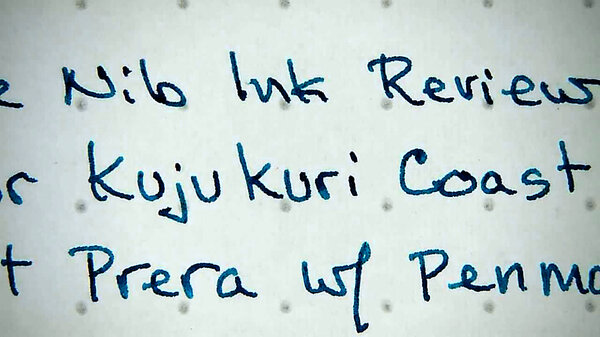 e Nib Ink Review
r Kujukuri Coast
t Prera w/ Penma